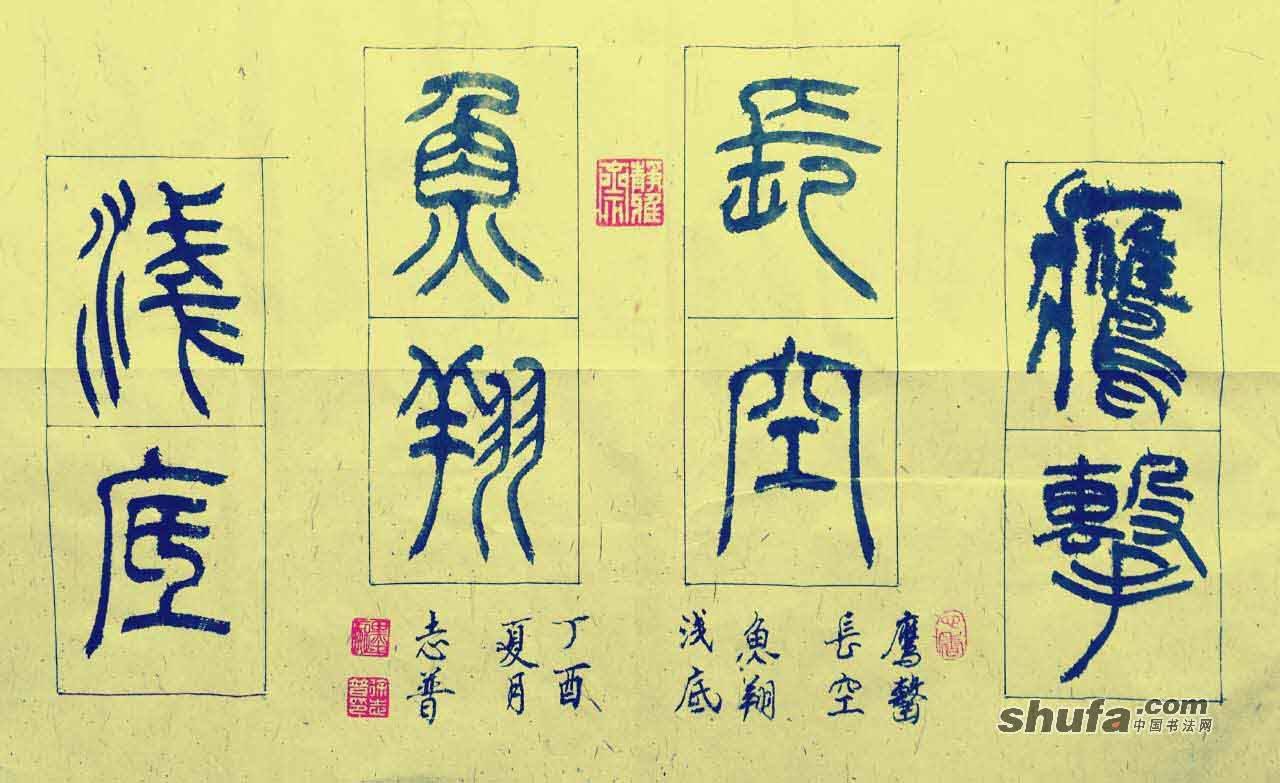 鷹擊
長空
魚翔
浅底
靜雅齋
鷹擊
長空
魚翔
浅底
丁酉
夏月
志普
徐志普印
shufa.com
中国书法网